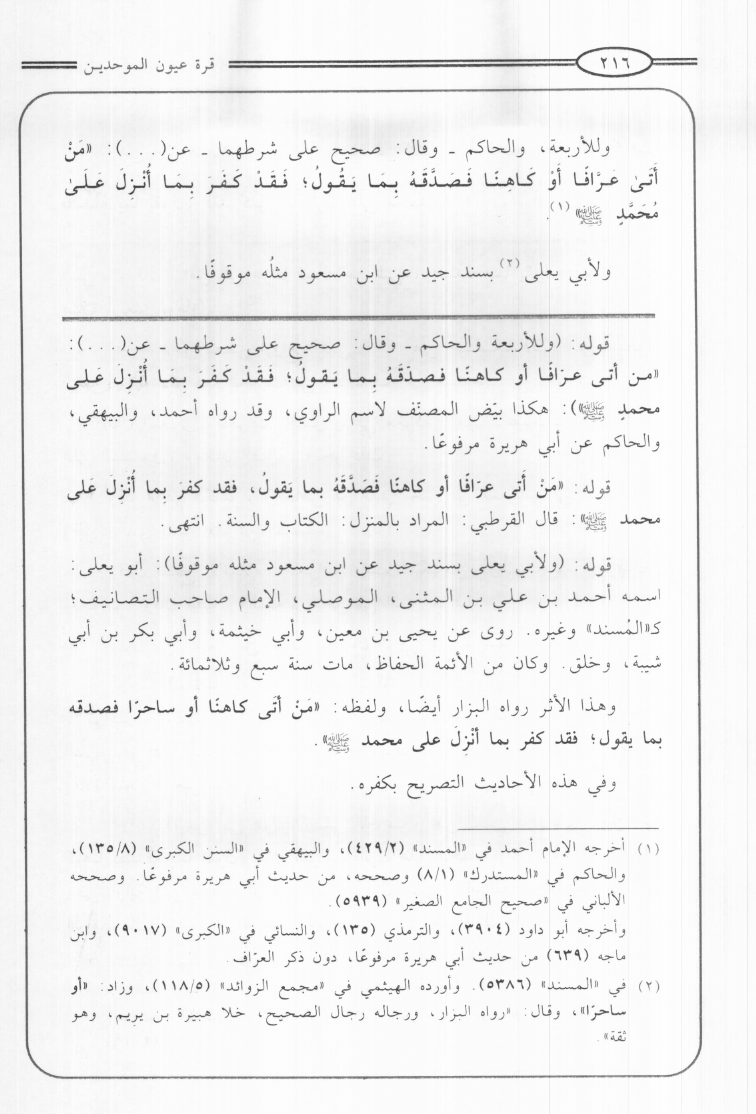 ٢١٦
قرة عيون الموحدين
وللأربعة، والحاكم ـ وقال: صحيح على شرطهما ـ عن(...): «مَنْ
أَتَىٰ عَرَّافًا أَوْ كَاهِنًا فَصَدَّقَهُ بِمَا يَقُولُ؛ فَقَدْ كَفَرَ بِمَا أُنْزِلَ عَلَىٰ
مُحَمَّدٍ ﷺ»(١).
ولأبي يعلى(٢) بسند جيد عن ابن مسعود مثلُه موقوفًا.
قوله: (وللأربعة والحاكم ـ وقال: صحيح على شرطهما ـ عن(...):
«من أتى عرّافًا أو كاهنًا فصدّقَهُ بِما يَقولُ؛ فَقَدْ كَفَرَ بِمَا أُنْزِلَ عَلى
محمدٍ ﷺ»): هكذا بيّض المصنّف لاسم الراوي، وقد رواه أحمد، والبيهقي،
والحاكم عن أبي هريرة مرفوعًا.
قوله: «مَنْ أَتى عرّافًا أو كاهنًا فَصَدَّقَهُ بما يَقولُ، فقد كفرَ بِما أُنْزِلَ عَلى
محمد ﷺ»: قال القرطبي: المراد بالمنزل: الكتاب والسنة. انتهى.
قوله: (ولأبي يعلى بسند جيد عن ابن مسعود مثله موقوفًا): أبو يعلى:
اسمه أحمد بن علي بن المثنى، الموصلي، الإمام صاحب التصانيف؛
كـ«المُسند» وغيره. روى عن يحيى بن معين، وأبي خيثمة، وأبي بكر بن أبي
شيبة، وخلق. وكان من الأئمة الحفاظ، مات سنة سبع وثلاثمائة.
وهذا الأثر رواه البزار أيضًا، ولفظه: «مَنْ أَتَى كاهنًا أو ساحرًا فصدقه
بما يقول؛ فقد كفر بما أُنْزِلَ على محمد ﷺ».
وفي هذه الأحاديث التصريح بكفره.
(١) أخرجه الإمام أحمد في «المسند» (٤٢٩/٢)، والبيهقي في «السنن الكبرى» (١٣٥/٨)،
والحاكم في «المستدرك» (٨/١) وصححه، من حديث أبي هريرة مرفوعًا. وصححه
الألباني في «صحيح الجامع الصغير» (٥٩٣٩).
وأخرجه أبو داود (٣٩٠٤)، والترمذي (١٣٥)، والنسائي في «الكبرى» (٩٠١٧)، وابن
ماجه (٦٣٩) من حديث أبي هريرة مرفوعًا، دون ذكر العرّاف.
(٢) في «المسند» (٥٣٨٦). وأورده الهيثمي في «مجمع الزوائد» (١١٨/٥)، وزاد: «أو
ساحرًا»، وقال: «رواه البزار، ورجاله رجال الصحيح، خلا هبيرة بن يريم، وهو
ثقة».